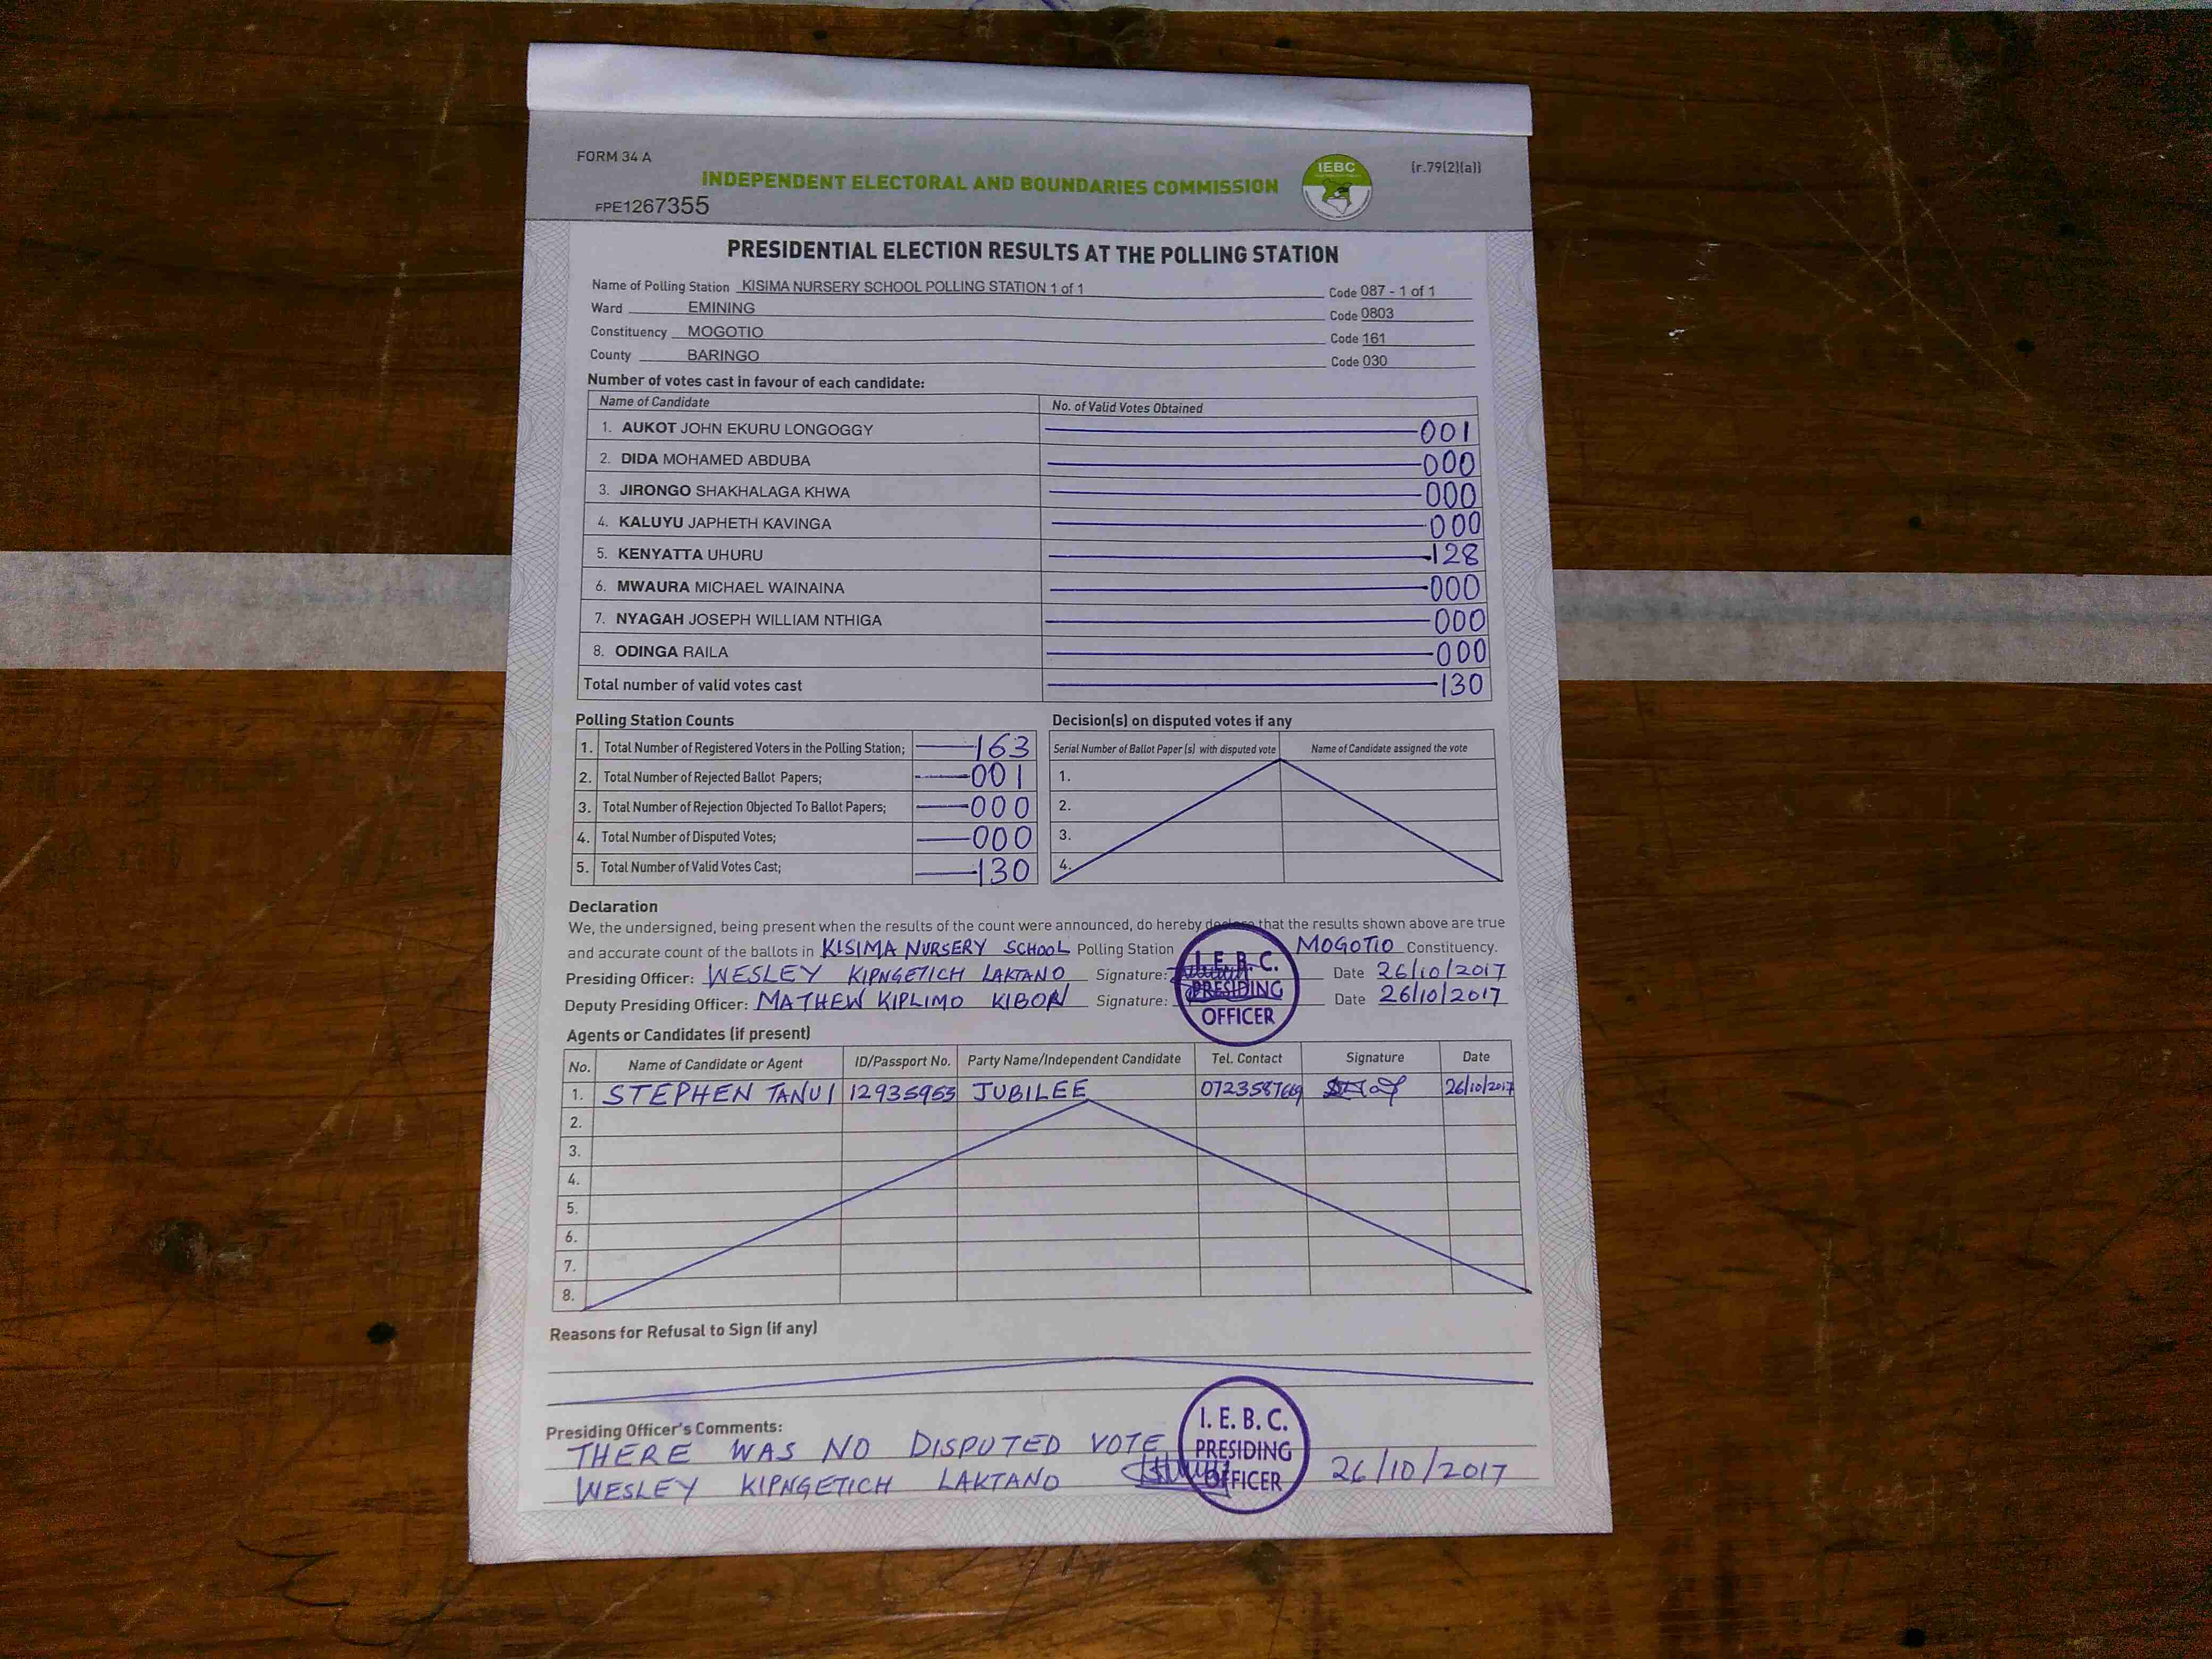 FORM 34 A
(r.79(2)(a))
INDEPENDENT ELECTORAL AND BOUNDARIES COMMISSION
IEBC
FPE1267355
PRESIDENTIAL ELECTION RESULTS AT THE POLLING STATION
Name of Polling Station KISIMA NURSERY SCHOOL POLLING STATION 1 of 1 Code 087 - 1 of 1
Ward EMINING Code 0803
Constituency MOGOTIO Code 161
County BARINGO Code 030
Number of votes cast in favour of each candidate:
Name of Candidate No. of Valid Votes Obtained
1. AUKOT JOHN EKURU LONGOGGY 001
2. DIDA MOHAMED ABDUBA 000
3. JIRONGO SHAKHALAGA KHWA 000
4. KALUYU JAPHETH KAVINGA 000
5. KENYATTA UHURU 128
6. MWAURA MICHAEL WAINAINA 000
7. NYAGAH JOSEPH WILLIAM NTHIGA 000
8. ODINGA RAILA 000
Total number of valid votes cast 130
Polling Station Counts
1. Total Number of Registered Voters in the Polling Station; 163
2. Total Number of Rejected Ballot Papers; 001
3. Total Number of Rejection Objected To Ballot Papers; 000
4. Total Number of Disputed Votes; 000
5. Total Number of Valid Votes Cast; 130
Decision(s) on disputed votes if any
Serial Number of Ballot Paper (s) with disputed vote Name of Candidate assigned the vote
1.
2.
3.
4.
Declaration
We, the undersigned, being present when the results of the count were announced, do hereby declare that the results shown above are true
and accurate count of the ballots in KISIMA NURSERY SCHOOL Polling Station MOGOTIO Constituency.
Presiding Officer: WESLEY KIPNGETICH LAKTANO Signature: Date 26/10/2017
Deputy Presiding Officer: MATHEW KIPLIMO KIBOR Signature: Date 26/10/2017
I.E.B.C.
PRESIDING
OFFICER
Agents or Candidates (if present)
No. Name of Candidate or Agent ID/Passport No. Party Name/Independent Candidate Tel. Contact Signature Date
1. STEPHEN TANUI 12935953 JUBILEE 0723587669 26/10/2017
2.
3.
4.
5.
6.
7.
8.
Reasons for Refusal to Sign (if any)
Presiding Officer's Comments:
THERE WAS NO DISPUTED VOTE
WESLEY KIPNGETICH LAKTANO 26/10/2017
I. E. B. C.
PRESIDING
OFFICER